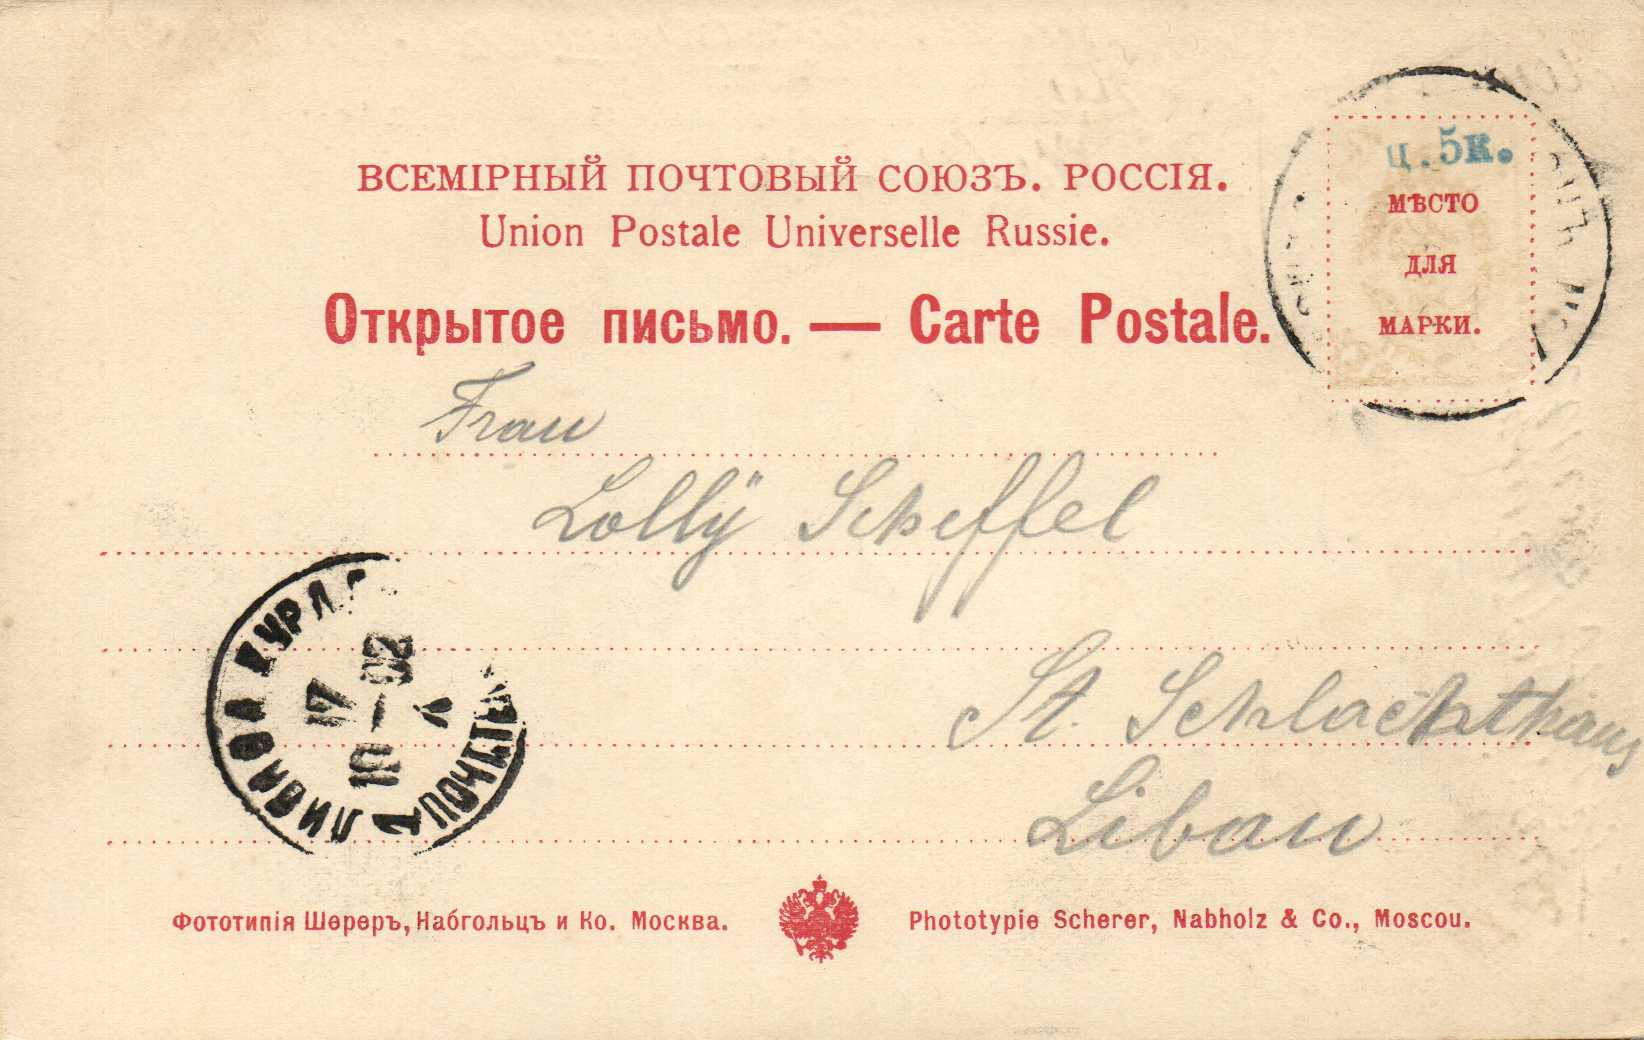 ВСЕМІРНЫЙ ПОЧТОВЫЙ СОЮЗЪ. РОССІЯ.
Union Postale Universelle Russie.
Открытое письмо. — Carte Postale.
ц.5к.
МѢСТО
ДЛЯ
МАРКИ.
Frau
Lollÿ Scheffel
St. Schlachthaus
Libau
ЛИБАВА КУРЛ.
17
10 — 02
1 ПОЧ.
Фототипія Шереръ, Набгольцъ и Ко. Москва.
Phototypie Scherer, Nabholz & Co., Moscou.